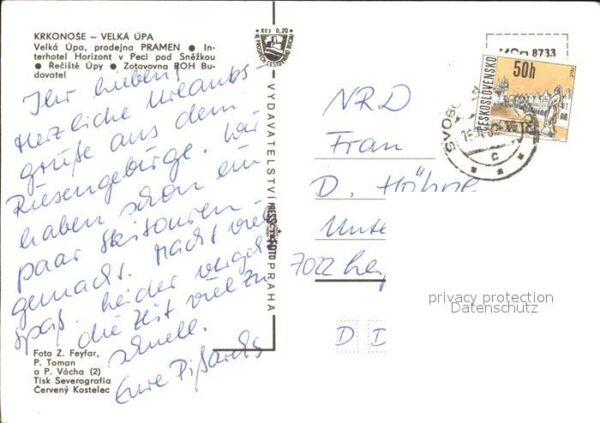 KRKONOŠE — VELKÁ ÚPA
Velká Úpa, prodejna PRAMEN ● In-
terhotel Horizont v Peci pod Sněžkou
● Řečiště Úpy ● Zotavovna ROH Bu-
dovatel
Ihr Lieben!
Herzliche Urlaubs-
grüße aus dem
Riesengebirge. Wir
haben schon ein
paar Skitouren
gemacht. Macht viel
Spaß. Leider vergeht
die Zeit viel zu
schnell.
Eure
Foto Z. Feyfar,
P. Toman
a P. Vácha (2)
Tisk Severografia
Červený Kostelec
Kčs 0,20
VYDAVATELSTVÍ
PRAHA
8733
50h
ČESKOSLOVENSKO
SVOBO
C
NRD
Frau
D. Höhne
Unte
7022 Lei
D D
privacy protection
Datenschutz